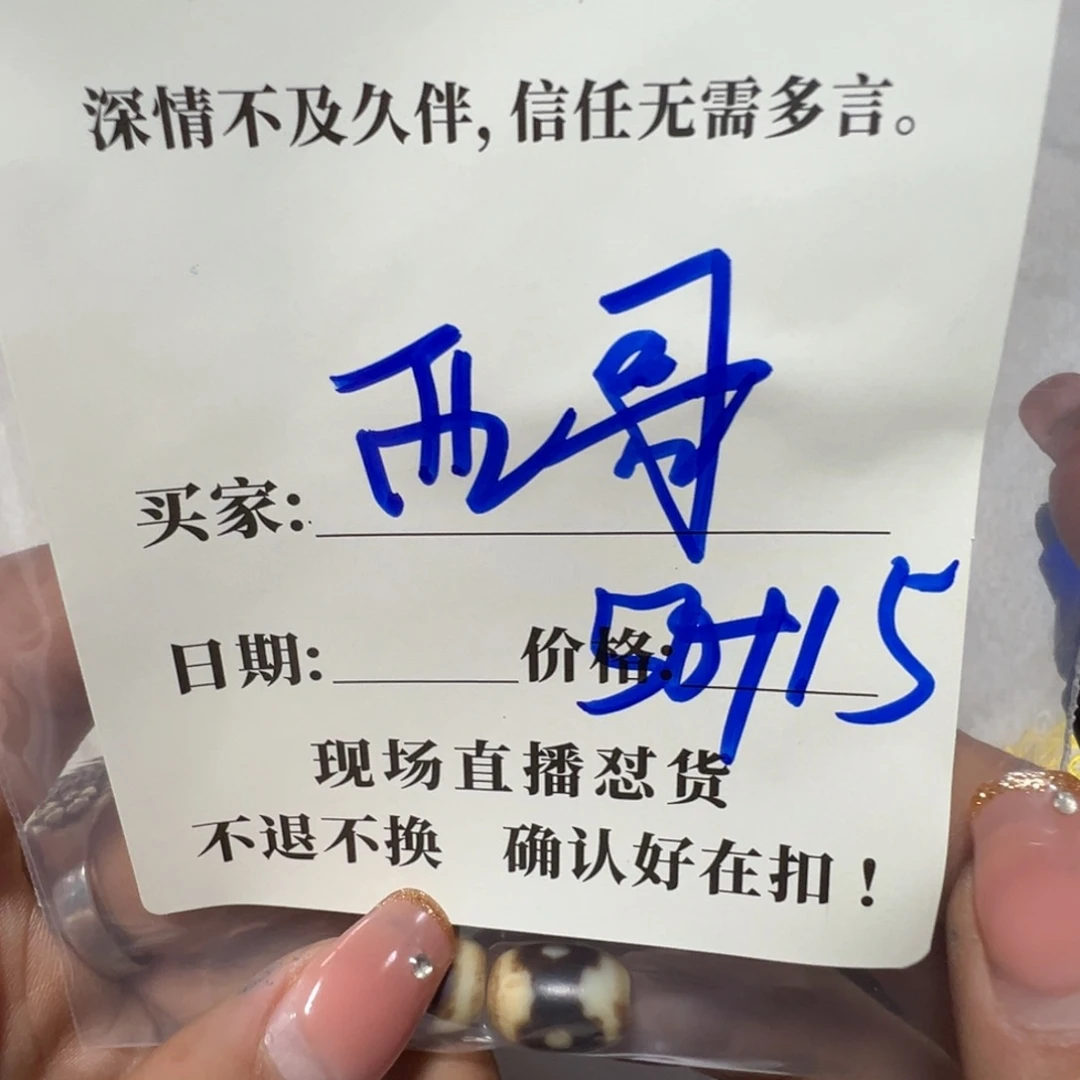 深情不及久伴,信任无需多言。
买家:西哥
日期:价格:50+15
现场直播怼货
不退不换 确认好在扣!